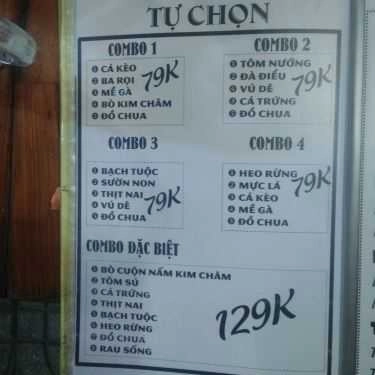 TỰ CHỌN
COMBO 1
❶ CÁ KÈO
❷ BA RỌI
❸ MỀ GÀ
❹ BÒ KIM CHÂM
❺ ĐỒ CHUA
79K
COMBO 2
❶ TÔM NƯỚNG
❷ ĐÀ ĐIỂU
❸ VÚ DÊ
❹ CÁ TRỨNG
❺ ĐỒ CHUA
79K
COMBO 3
❶ BẠCH TUỘC
❷ SƯỜN NON
❸ THỊT NAI
❹ VÚ DÊ
❺ ĐỒ CHUA
79K
COMBO 4
❶ HEO RỪNG
❷ MỰC LÁ
❸ CÁ KÈO
❹ MỀ GÀ
❺ ĐỒ CHUA
79K
COMBO ĐẶC BIỆT
❶ BÒ CUỘN NẤM KIM CHÂM
❷ TÔM SÚ
❸ CÁ TRỨNG
❹ THỊT NAI
❺ BẠCH TUỘC
❻ HEO RỪNG
❼ ĐỒ CHUA
❽ RAU SỐNG
129K